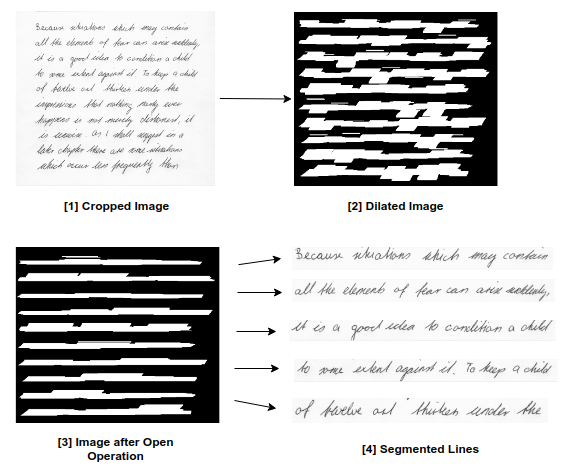 Because situations which may contain
all the elements of fear can arise suddenly,
it is a good idea to condition a child
to some extent against it. To keep a child
of twelve or thirteen under the
impression that nothing nasty ever
happens is not merely dishonest, it
is unwise. as I shall suggest in a
later chapter there are some situations
which occur less frequently than
[1] Cropped Image
[2] Dilated Image
Because situations which may contain
all the elements of fear can arise suddenly,
it is a good idea to condition a child
to some extent against it. To keep a child
of twelve or thirteen under the
[3] Image after Open
Operation
[4] Segmented Lines